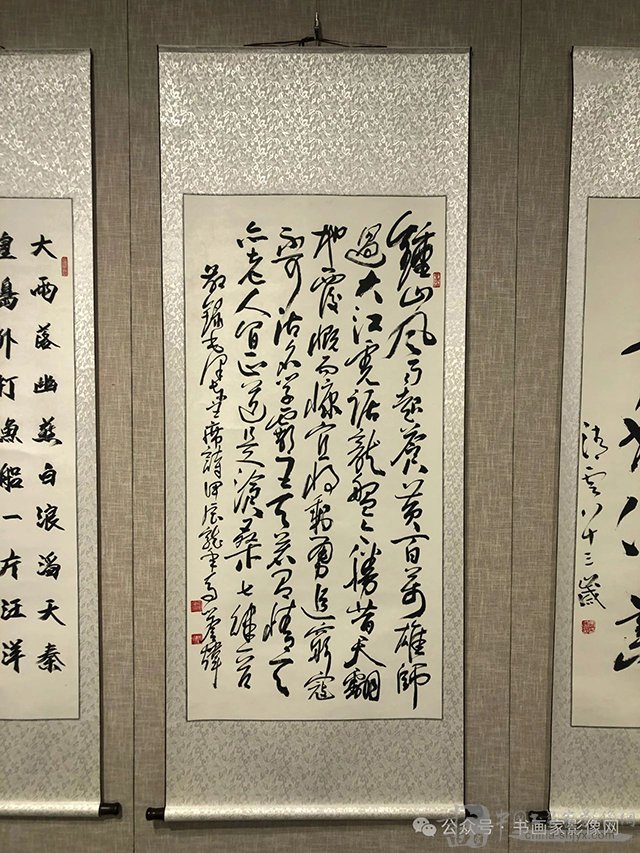 八十三歲
鍾山风雨起蒼黄百萬雄師
過大江虎踞龍盤今勝昔天翻
地覆慨而慷宜将剩勇追窮寇
不可沽名學霸王天若有情天
亦老人间正道是滄桑七律一首
敬録毛澤東主席詩甲辰龍年
大雨落幽燕白浪滔天秦
皇島外打魚船一片汪洋
公众号·书画家影像网